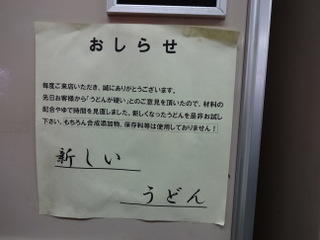 おしらせ
毎度ご来店いただき、誠にありがとうございます。
先日お客様から「うどんが硬い」とのご意見を頂いたので、材料の
配合やゆで時間を見直しました。新しくなったうどんを是非お試し
下さい。もちろん合成添加物、保存料等は使用しておりません!
新しい
うどん